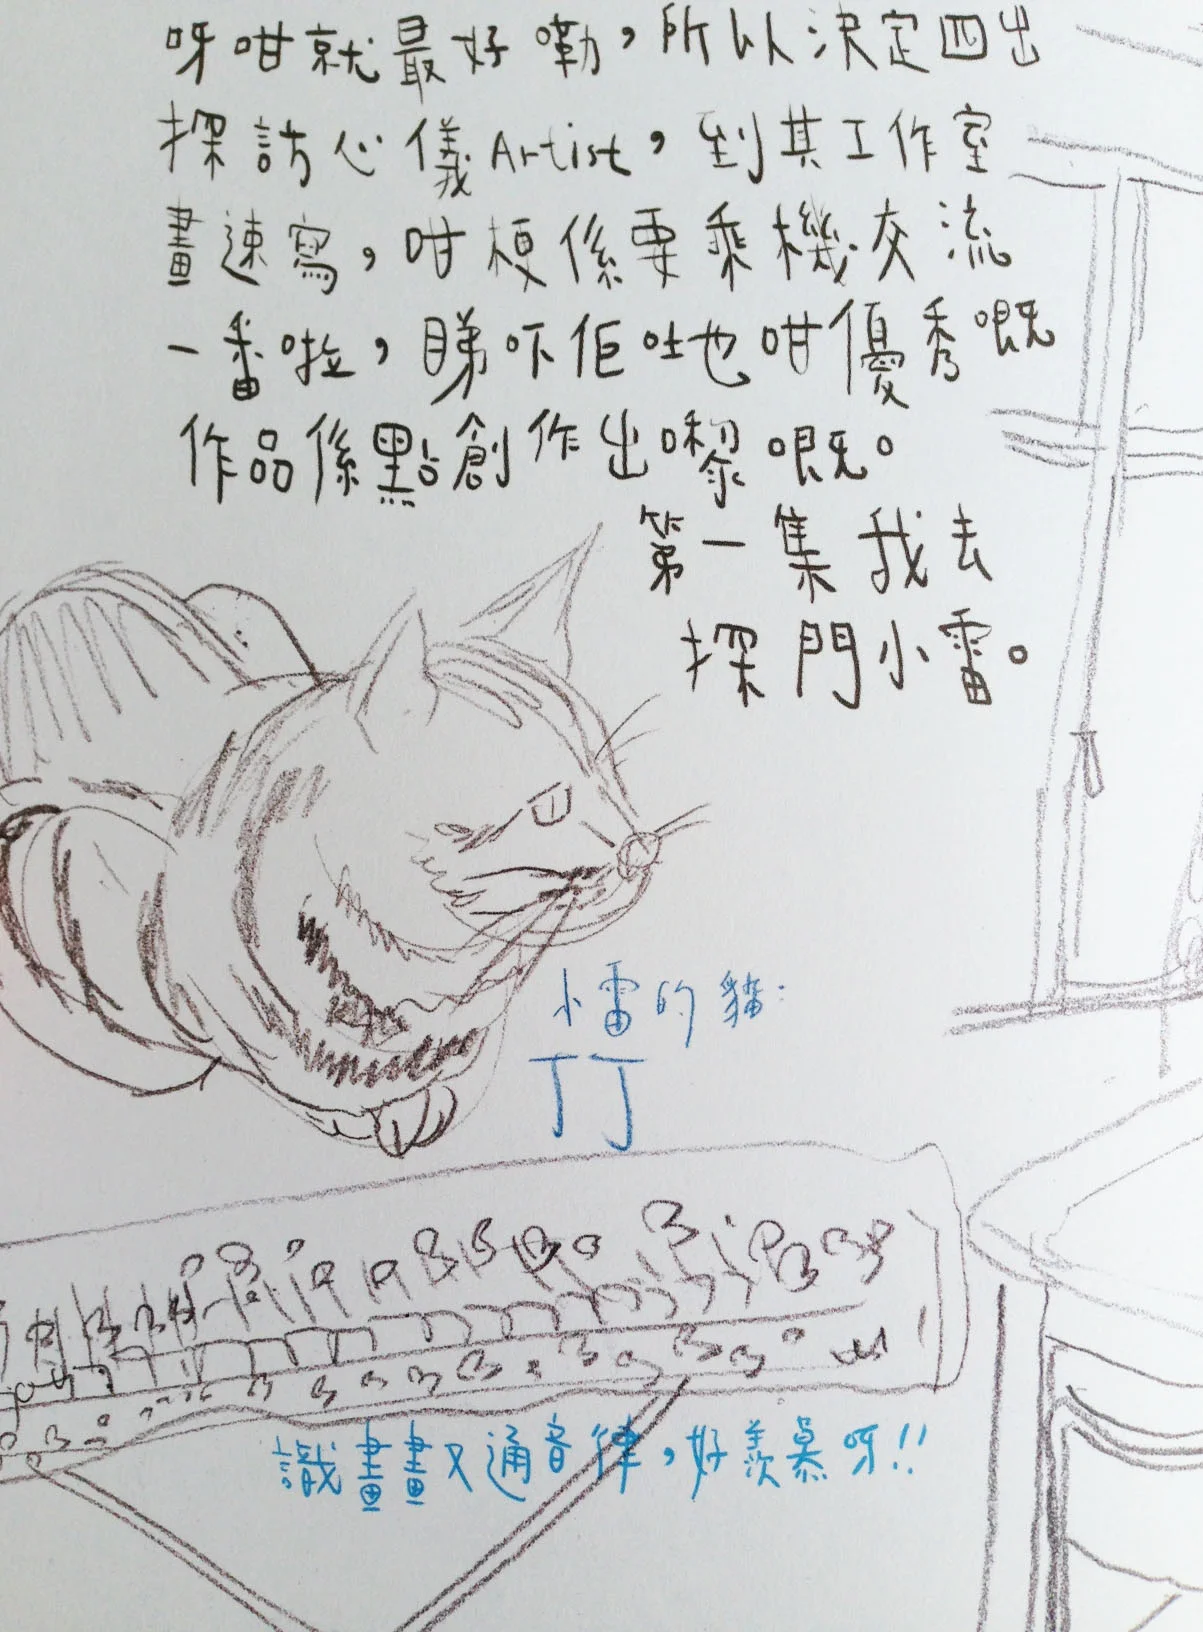 呀咁就最好嘞，所以決定四出
探訪心儀Artist，到其工作室
畫速寫，咁梗係要乘機交流
一番啦，睇吓佢吐也咁優秀嘅
作品係點創作出嚟嘅。
第一集我去
探門小雷。
小雷的貓：
丁丁
識畫畫又通音律，好羨慕呀!!